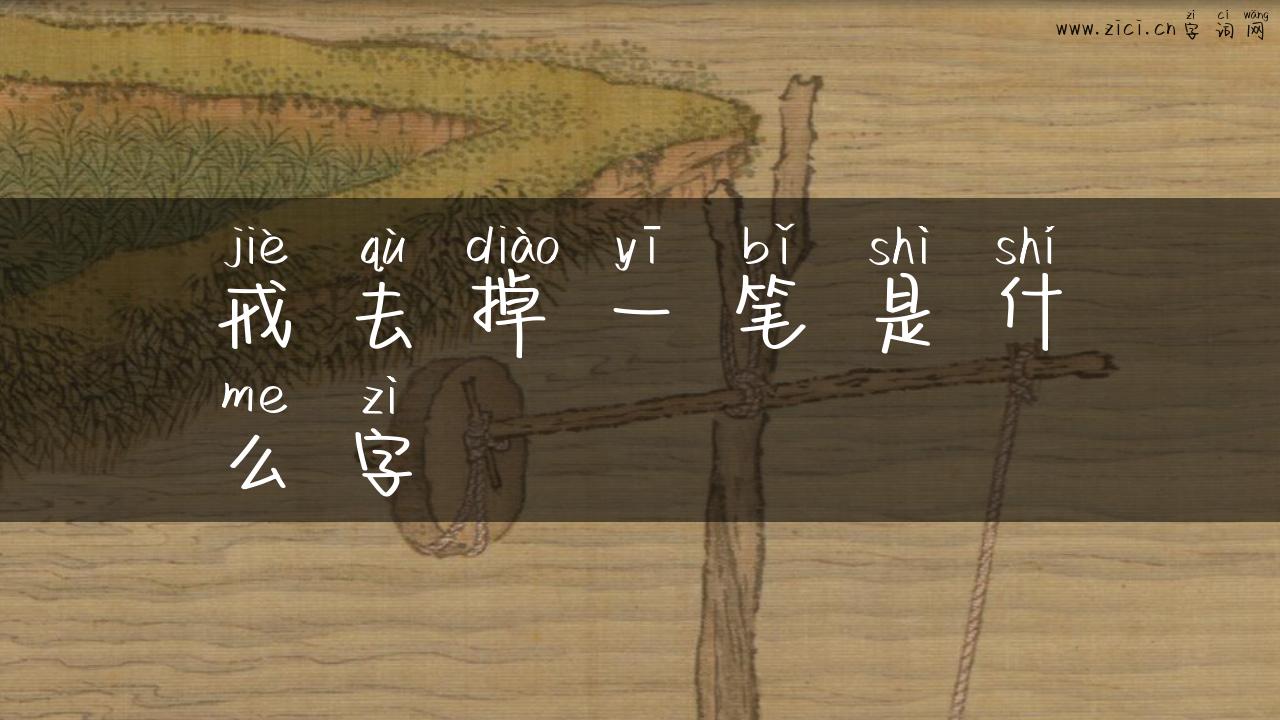 zì cí wǎng
www.zici.cn字词网
jiè qù diào yī bǐ shì shí
戒去掉一笔是什
me zì
么字